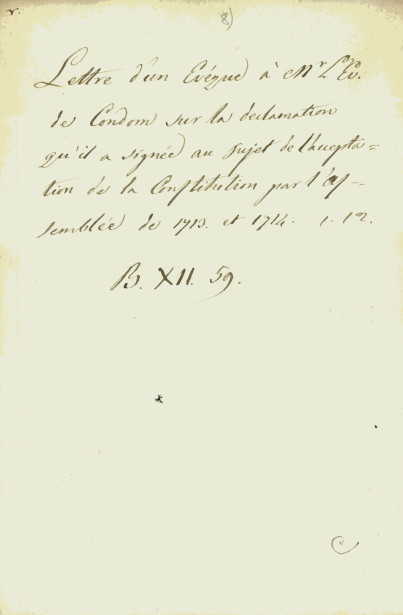 8)
Lettre d'un Evéque à Mr L'Ev.
de Condom sur la declamation
qu'il a signée au sujet de l'accepta=
tion de la Constitution par l'as-
semblée de 1713. et 1714. 1. 12.
B. XII. 59.